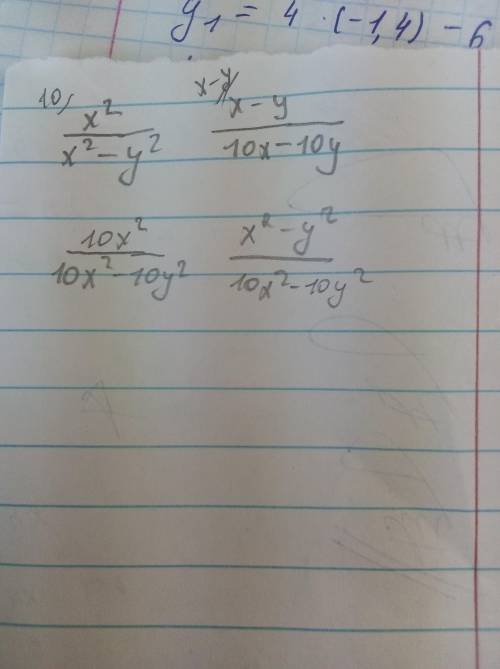 y₁ = 4 · (-1,4) - 6
10, x²/(x² - y²) (x - y)/(10x - 10y)
10x²/(10x² - 10y²) (x² - y²)/(10x² - 10y²)